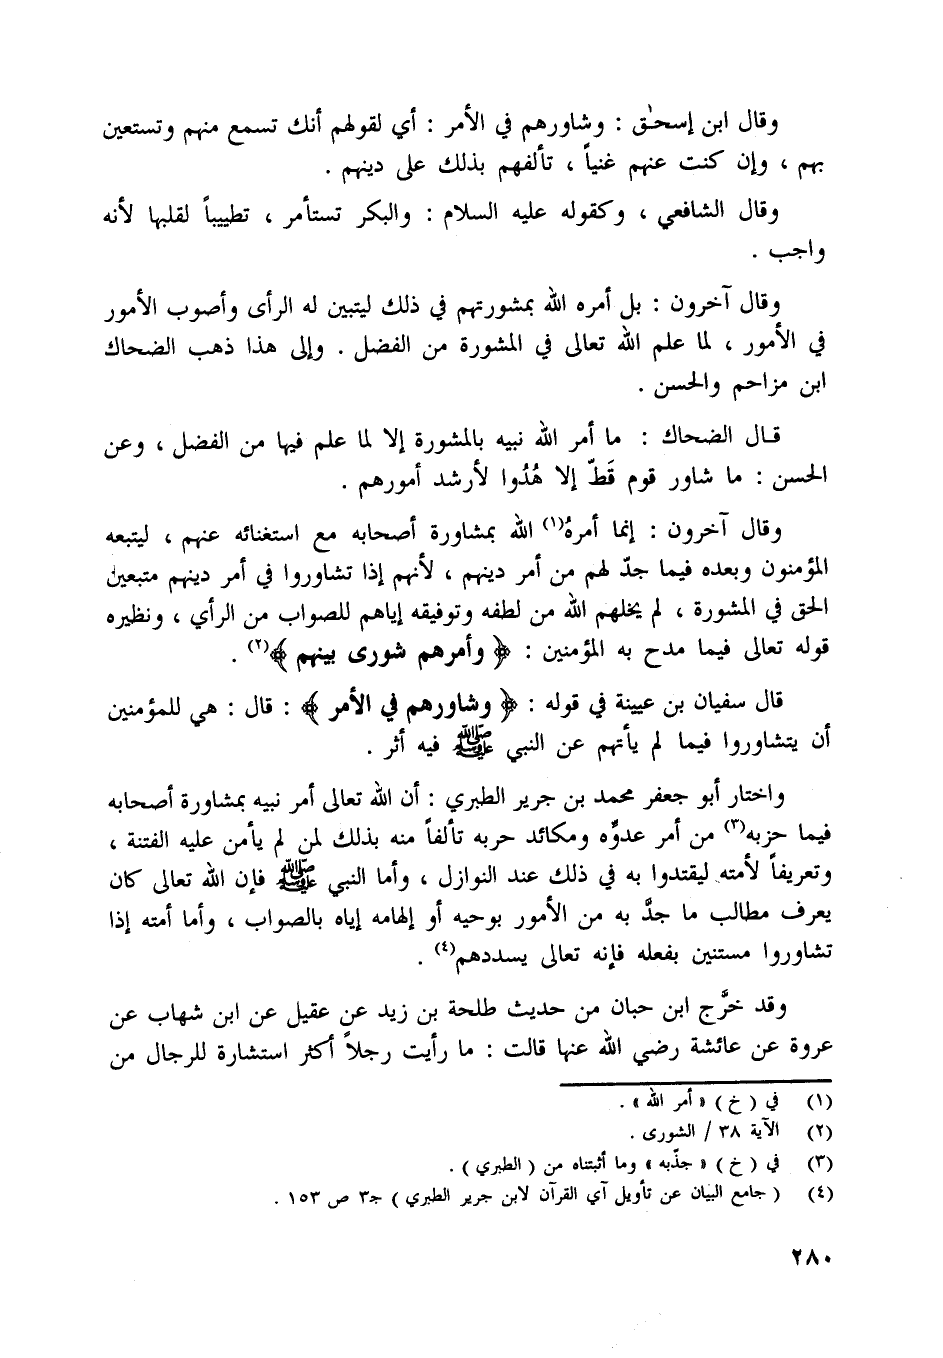 وقال ابن إسحٰق : وشاورهم في الأمر : أي لقولهم أنك تسمع منهم وتستعين
بهم ، وإن كنت عنهم غنياً ، تألفهم بذلك على دينهم .
وقال الشافعي ، وكقوله عليه السلام : والبكر تستأمر ، تطييباً لقلبها لأنه
واجب .
وقال آخرون : بل أمره الله بمشورتهم في ذلك ليتبين له الرأى وأصوب الأمور
في الأمور ، لما علم الله تعالى في المشورة من الفضل . وإلى هذا ذهب الضحاك
ابن مزاحم والحسن .
قال الضحاك : ما أمر الله نبيه بالمشورة إلا لما علم فيها من الفضل ، وعن
الحسن : ما شاور قوم قَطّ إلا هُدُوا لأرشد أمورهم .
وقال آخرون : إنما أمرهُ(١) الله بمشاورة أصحابه مع استغنائه عنهم ، ليتبعه
المؤمنون وبعده فيما جدّ لهم من أمر دينهم ، لأنهم إذا تشاوروا في أمر دينهم متبعين
الحق في المشورة ، لم يخلهم الله من لطفه وتوفيقه إياهم للصواب من الرأي ، ونظيره
قوله تعالى فيما مدح به المؤمنين : ﴿ وأمرهم شورى بينهم ﴾(٢) .
قال سفيان بن عيينة في قوله : ﴿ وشاورهم في الأمر ﴾ : قال : هي للمؤمنين
أن يتشاوروا فيما لم يأتهم عن النبي ﷺ فيه أثر .
واختار أبو جعفر محمد بن جرير الطبري : أن الله تعالى أمر نبيه بمشاورة أصحابه
فيما حزبه(٣) من أمر عدوِّه ومكائد حربه تألفاً منه بذلك لمن لم يأمن عليه الفتنة ،
وتعريفاً لأمته ليقتدوا به في ذلك عند النوازل ، وأما النبي ﷺ فإن الله تعالى كان
يعرف مطالب ما جدَّ به من الأمور بوحيه أو إلهامه إياه بالصواب ، وأما أمته إذا
تشاوروا مستنين بفعله فإنه تعالى يسددهم(٤) .
وقد خرَّج ابن حبان من حديث طلحة بن زيد عن عقيل عن ابن شهاب عن
عروة عن عائشة رضي الله عنها قالت : ما رأيت رجلاً أكثر استشارة للرجال من
(١) في ( خ ) « أمر الله » .
(٢) الآية ٣٨ / الشورى .
(٣) في ( خ ) « جذّبه » وما أثبتناه من ( الطبري ) .
(٤) ( جامع البيان عن تأويل آي القرآن لابن جرير الطبري ) جـ٣ ص ١٥٣ .
٢٨٠